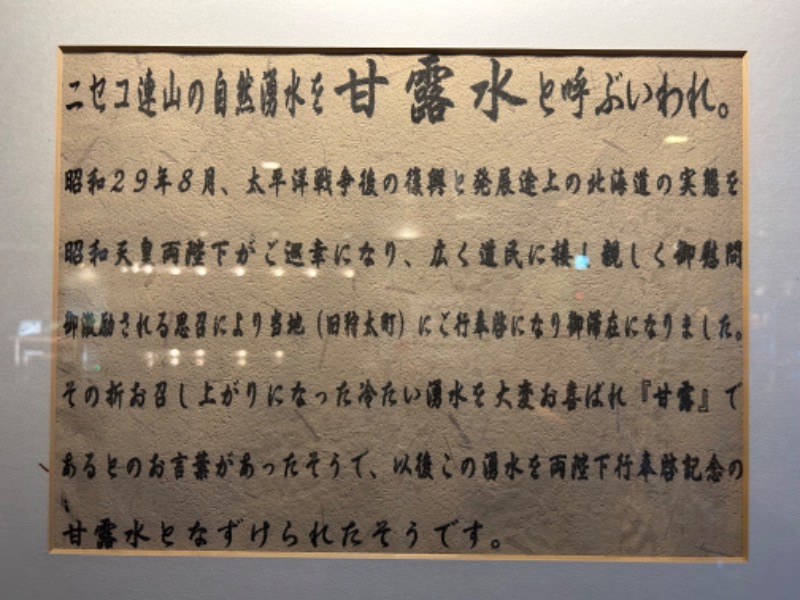 ニセコ連山の自然湧水を甘露水と呼ぶいわれ。
昭和29年8月、太平洋戦争後の復興と発展途上の北海道の実態を
昭和天皇両陛下がご巡幸になり、広く道民に接し親しく御慰問
御激励される思召により当地（旧狩太町）にご行幸啓になり御滞在になりました。
その折お召し上がりになった冷たい湧水を大変お喜ばれ『甘露』で
あるとのお言葉があったそうで、以後この湧水を両陛下行幸啓記念の
甘露水となずけられたそうです。